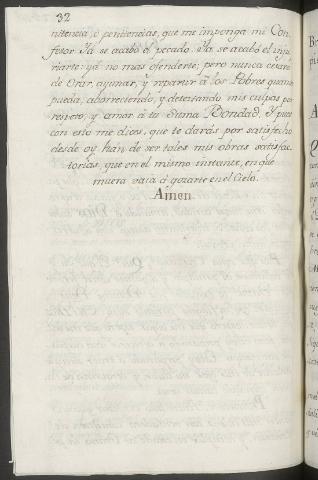 32
nitencia, ó penitencias, que me imponga mi Con-
fesor. Ya se acabó el pecado. Ya se acabó el inju-
riarte: ya no mas ofenderte; pero nunca cesaré
de Orar, ayunar, y repartir a los Pobres quanto
pueda, aborreciendo, y detestando mis culpas por
respeto, y amor a tu Suma Bondad. Y pues
con esto me dices, que te darás por satisfecho
desde oy han de ser tales mis obras satisfac-
torias, que en el mismo instante, en que
muera vaia á gozarte en el Cielo.
Amen.